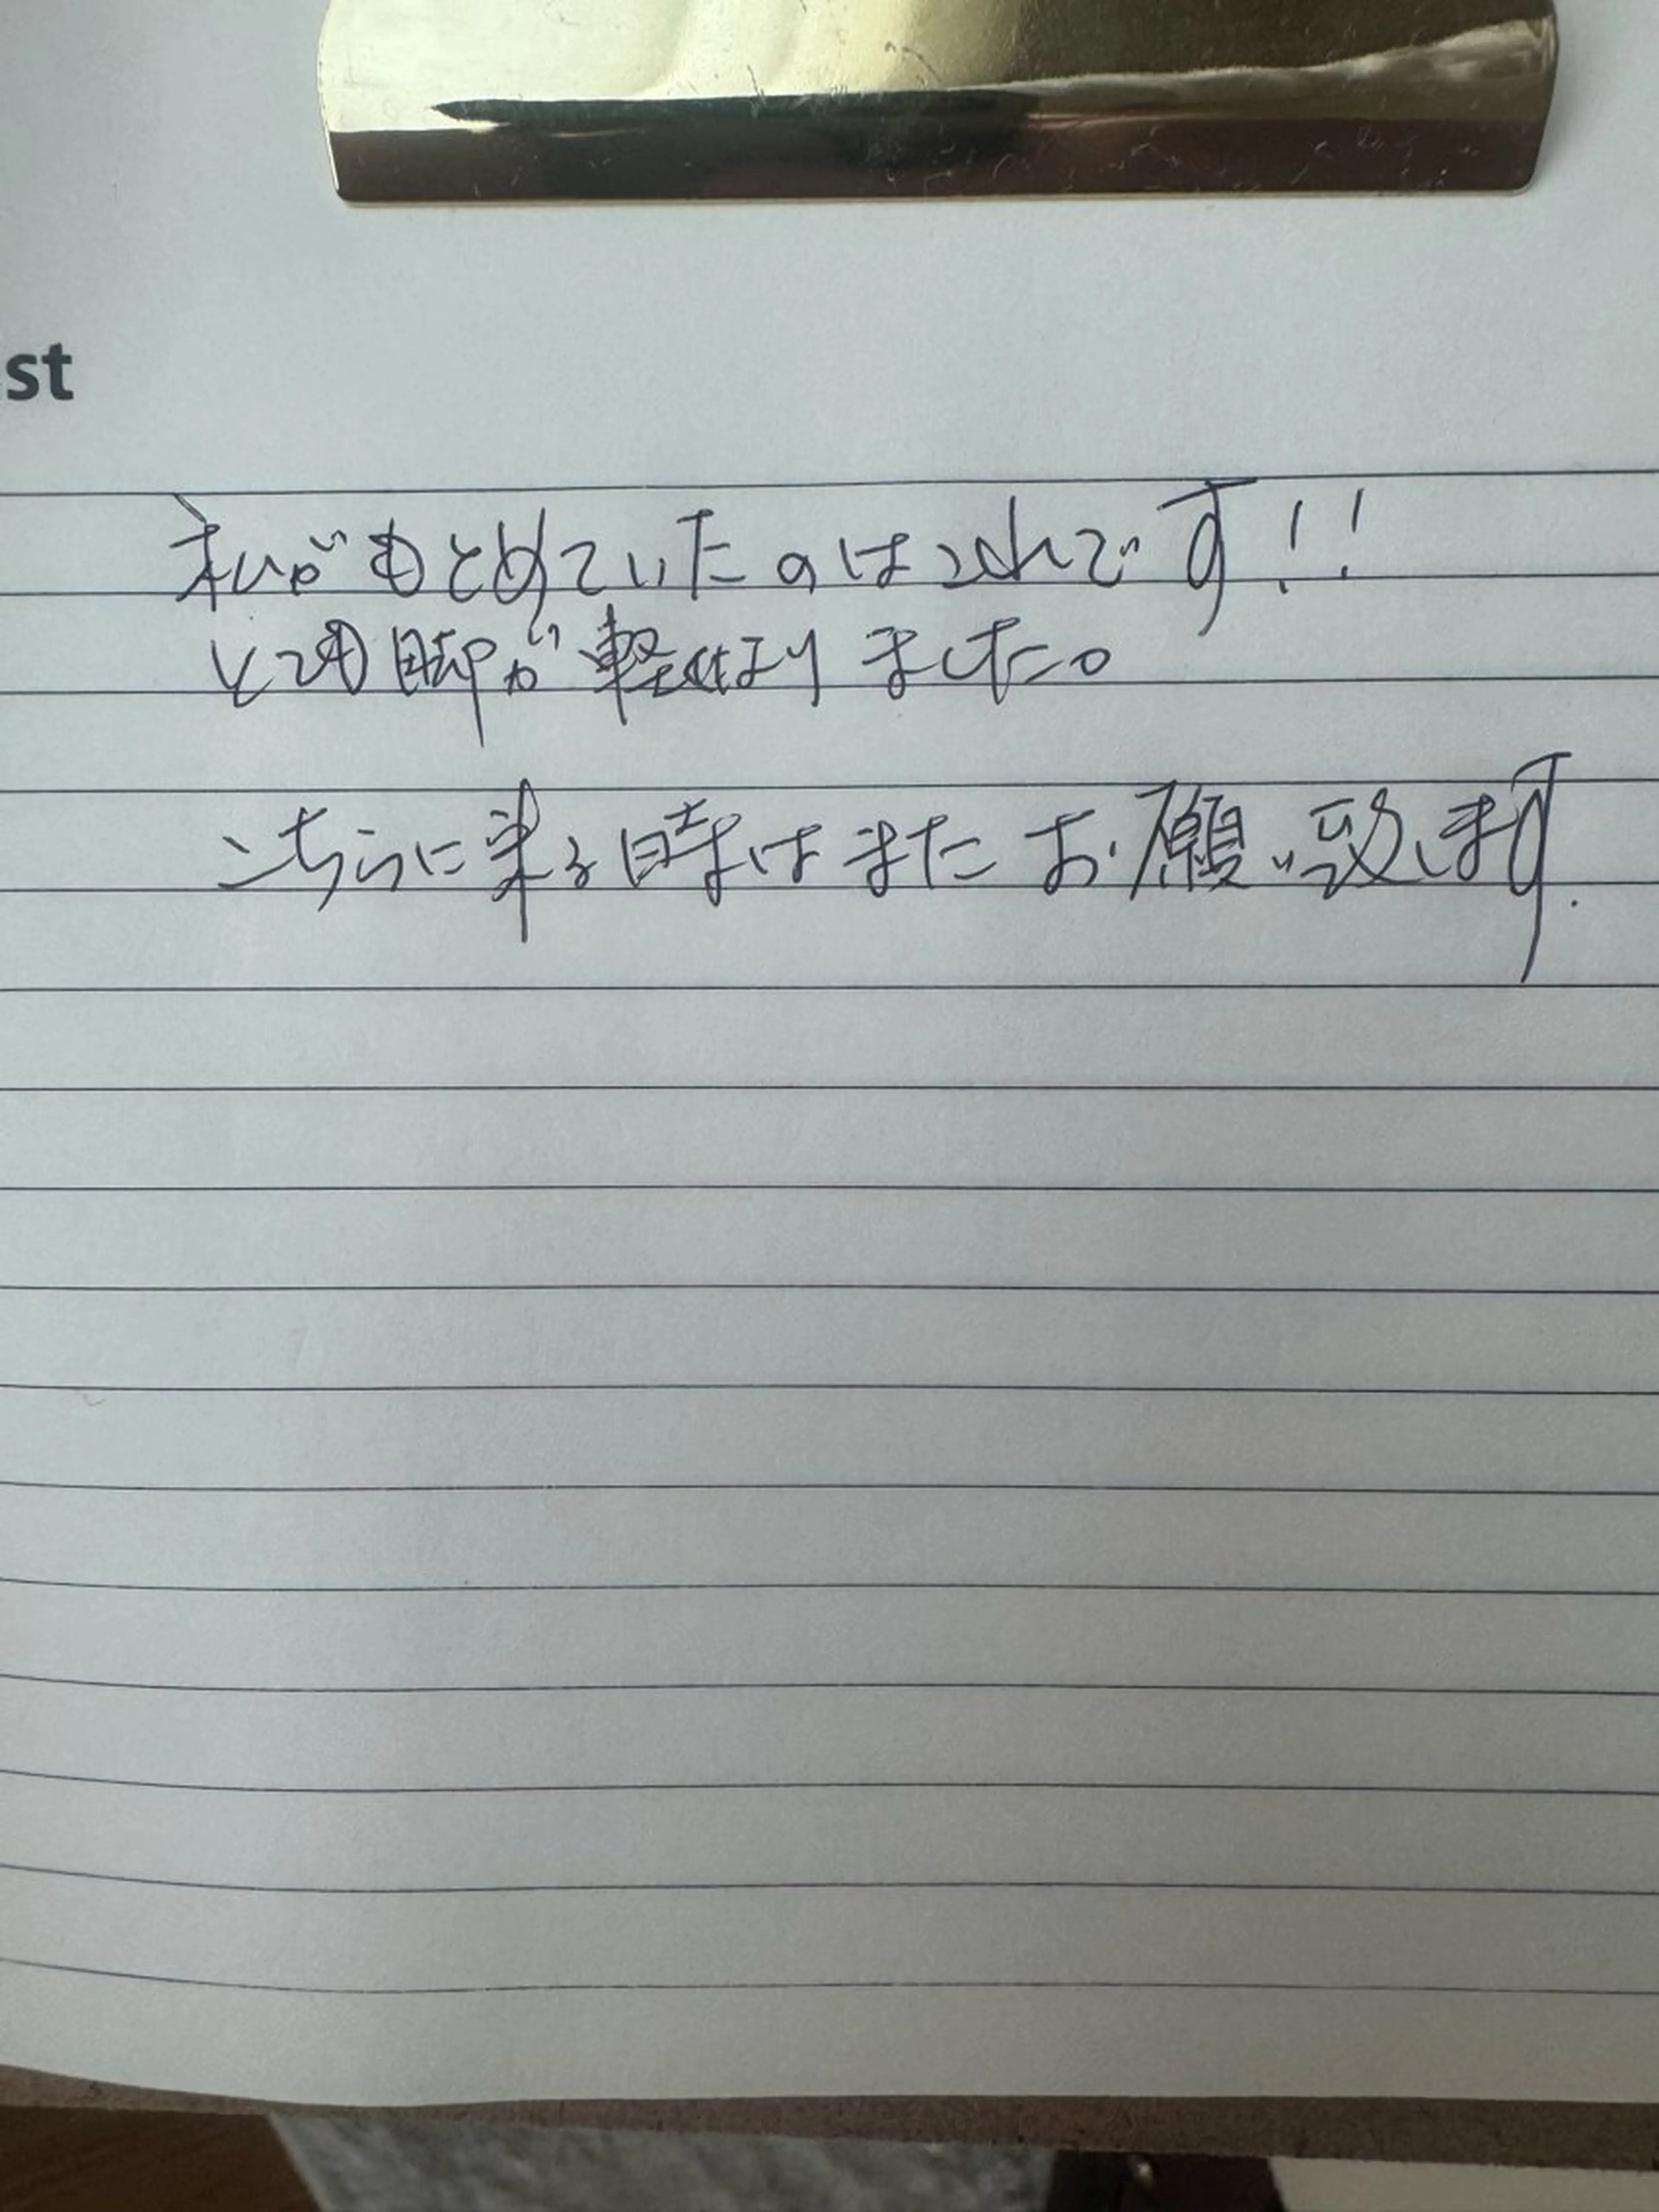 st
私がもとめていたのはこれです!!
とても脚が軽くなりました。
こちらに来る時はまたお願い致します.